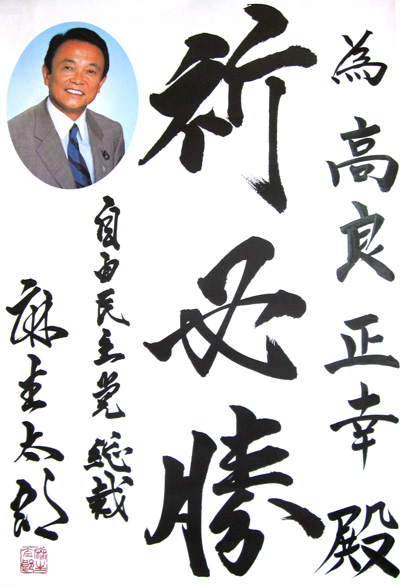 為 高良正幸 殿
祈必勝
自由民主党 総裁
麻生太郎